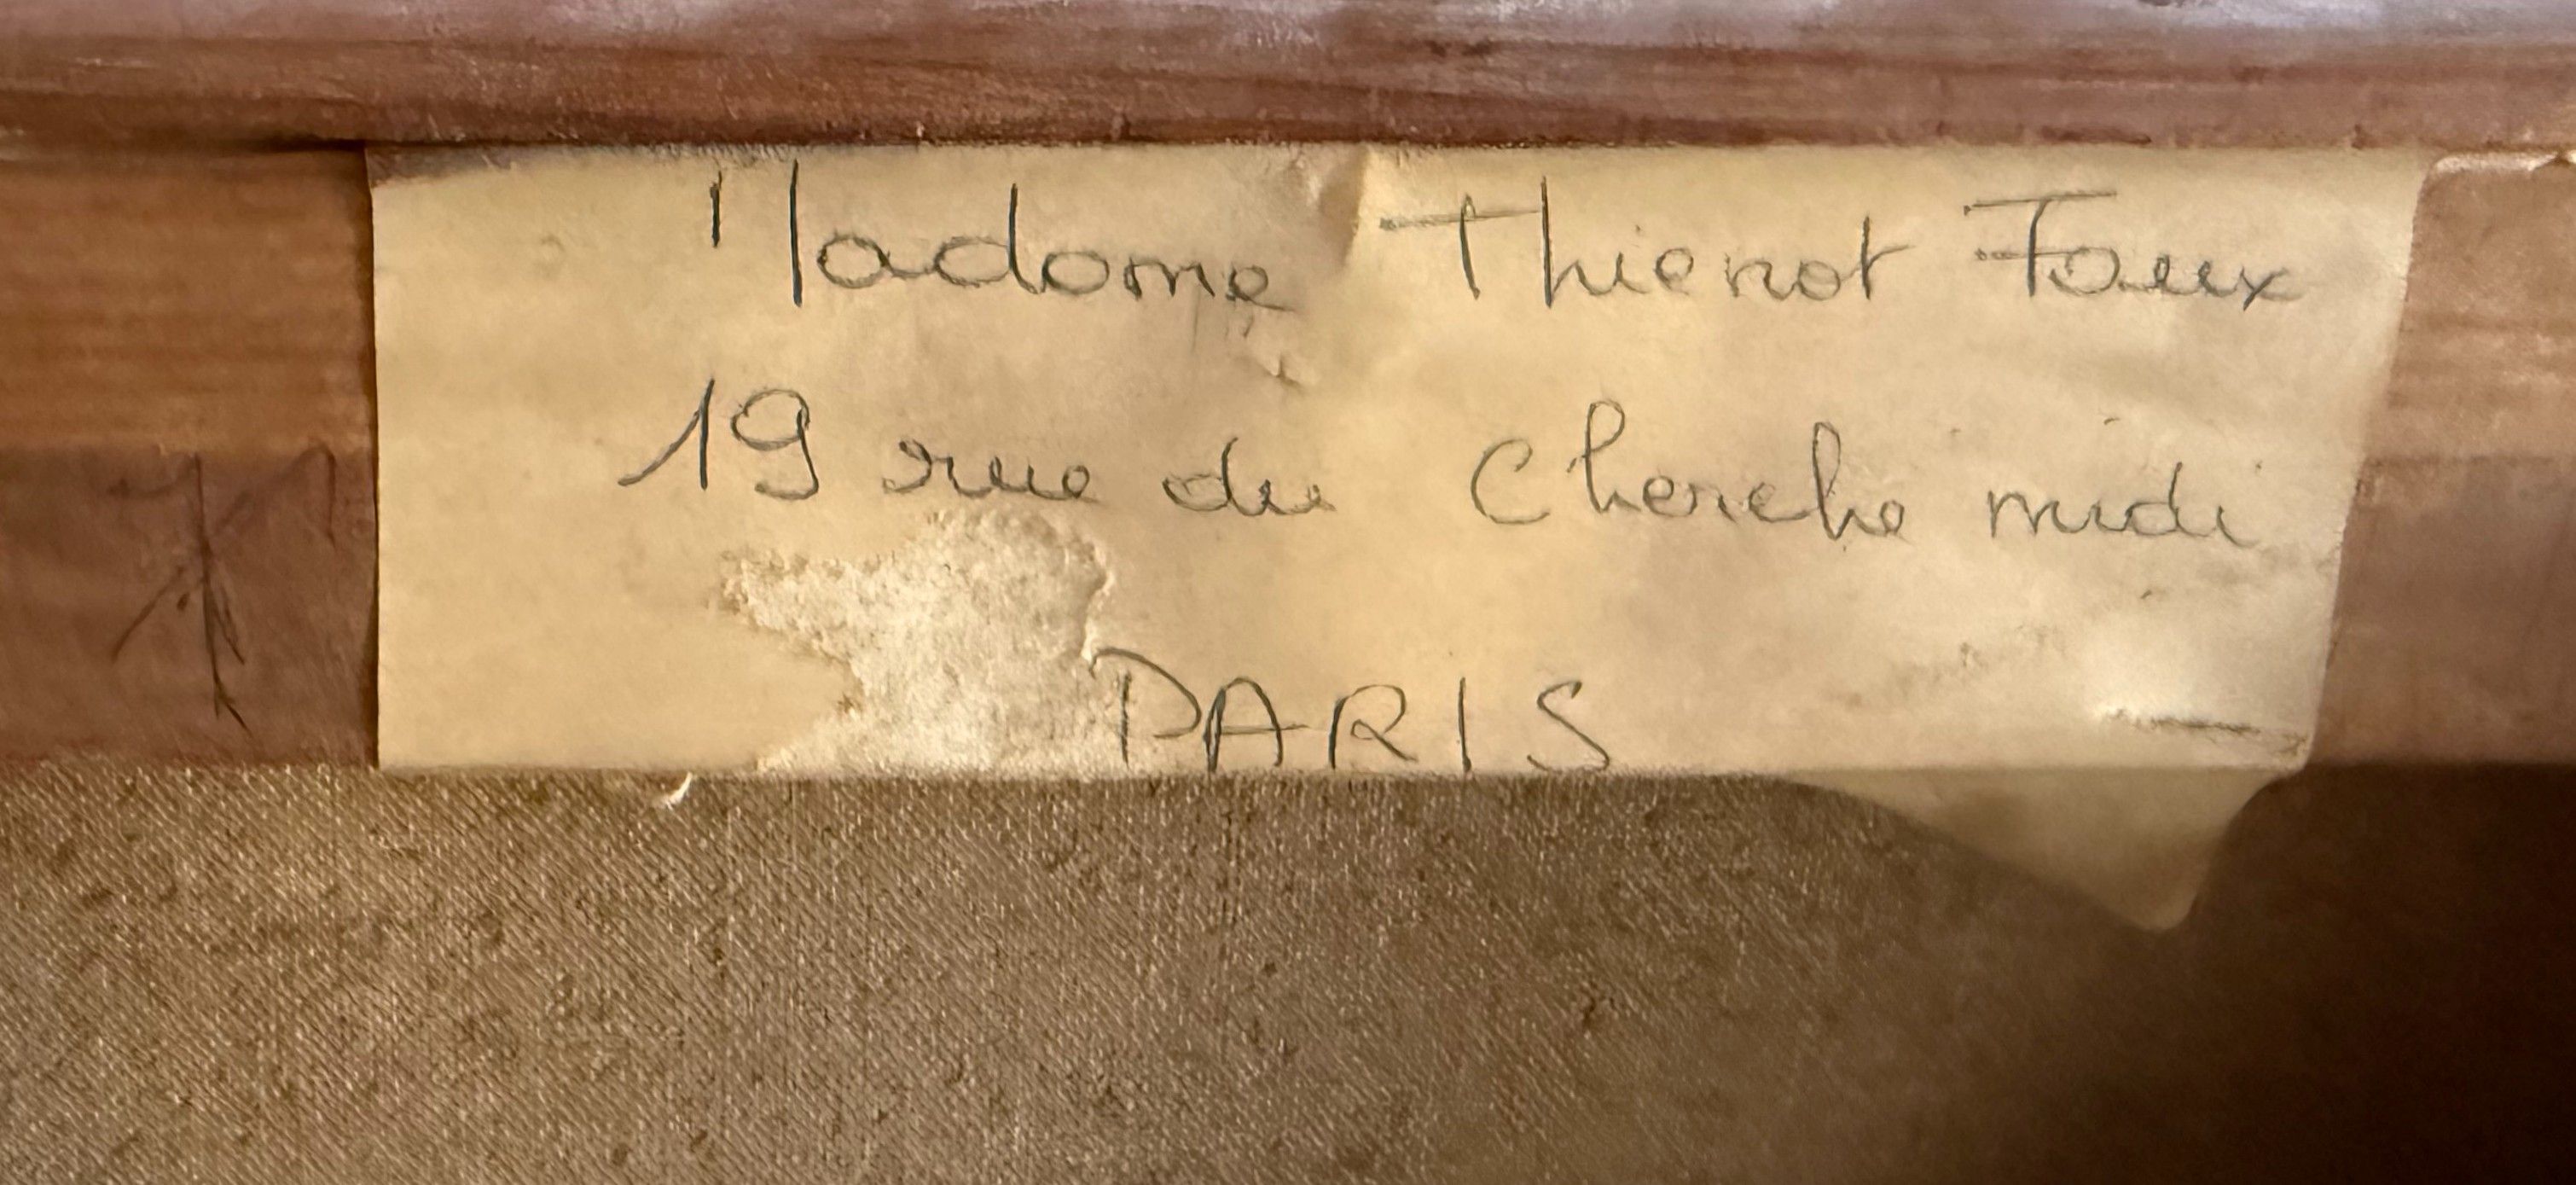 Madame Thienot Faux
19 rue du Cherche midi
PARIS